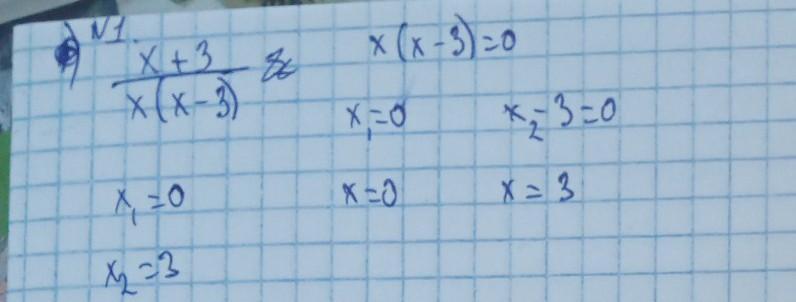 N1.
) x+3 / x(x-3)
x(x-3)=0
x₁=0 x₂-3=0
x₁=0 x=0 x=3
x₂=3